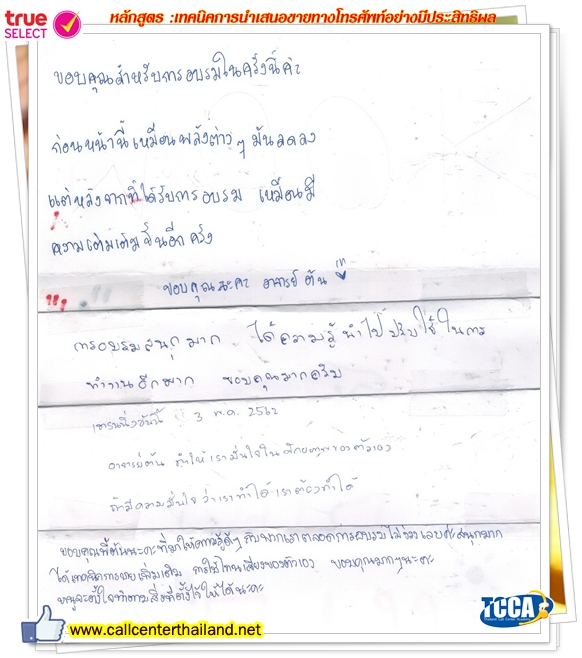 true
SELECT
หลักสูตร :เทคนิคการนำเสนอขายทางโทรศัพท์อย่างมีประสิทธิผล
ขอบคุณสำหรับการอบรมในครั้งนี้ค่ะ
ก่อนหน้านี้เหมือนพลังต่างๆ มันลดลง
แต่หลังจากที่ได้รับการอบรม เหมือนมี
ความเติมเต็มขึ้นอีกครั้ง
ขอบคุณนะคะ อาจารย์ ต้น
การอบรมสนุกมาก ได้ความรู้นำไปปรับใช้ในการ
ทำงานอีกมาก ขอบคุณมากครับ
3 พ.ค. 2562
อาจารย์ต้น ทำให้เรามั่นใจในศักยภาพของตัวเอง
ถ้ามีความมั่นใจว่าเราทำได้ เราต้องทำได้
ขอบคุณพี่ต้นนะคะที่มาให้ความรู้ดีๆ กับพวกเราตลอดการอบรม ไม่ง่วงเลยค่ะสนุกมาก
ได้เทคนิคการขายเพิ่มเติม การใช้โทนเสียงของตัวเอง ขอบคุณมากๆนะคะ
หนูจะตั้งใจทำตามสิ่งที่ตั้งไว้ให้ได้นะคะ
TCCA
Thailand Call Center Academy
www.callcenterthailand.net